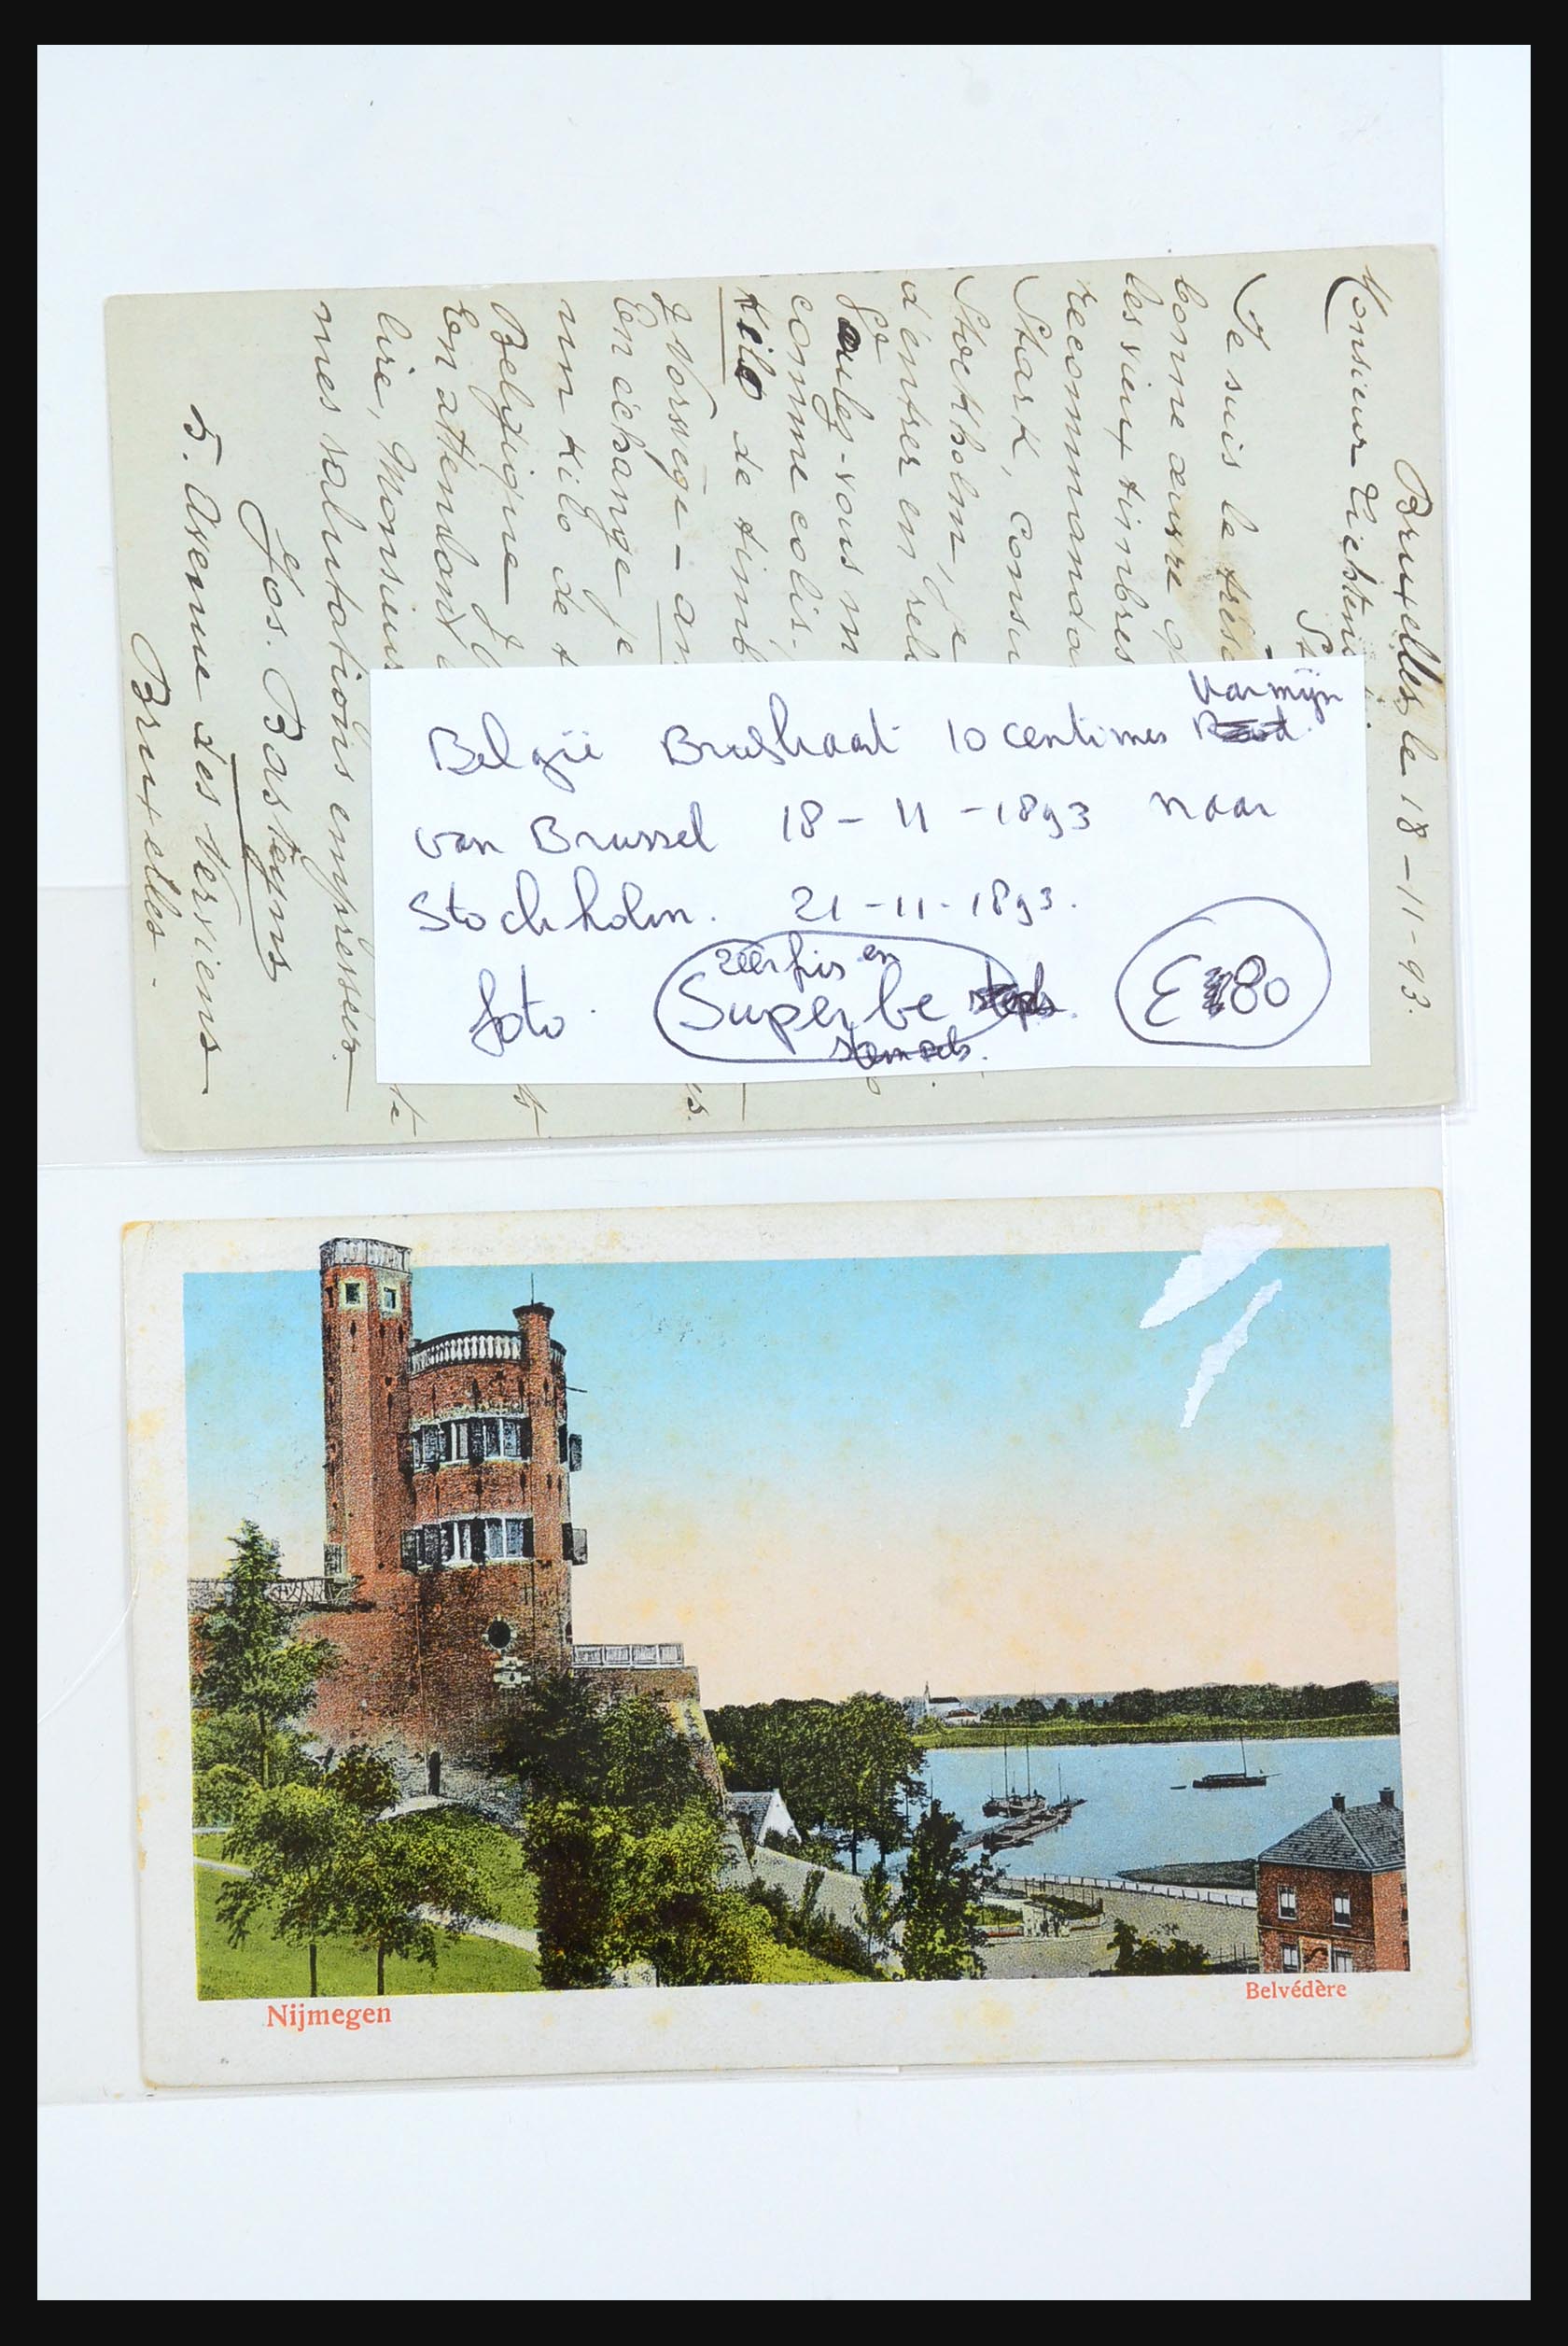 Bruxelles le 18-11-93.
Monsieur
St
Je suis le très
bonne œuvre q
les vieux timbres
recommanda
Stark, Consu
Stockholm, je
d'entrer en rel
voulez-vous m
comme colis-
Kilo de timb
Norvège - an
En échange je
un kilo de t
Belgique
En attendant
lire, Monsieur
mes salutations empressées.
Jos. Basteyns
5. Avenue des Verviens
Bruxelles.
België Briefkaart 10 centimes Karmijn
van Brussel 18-11-1893 naar
Stockholm. 21-11-1893.
foto. zeer fris en
Superbe
stempels.
€ 80
Nijmegen
Belvédère